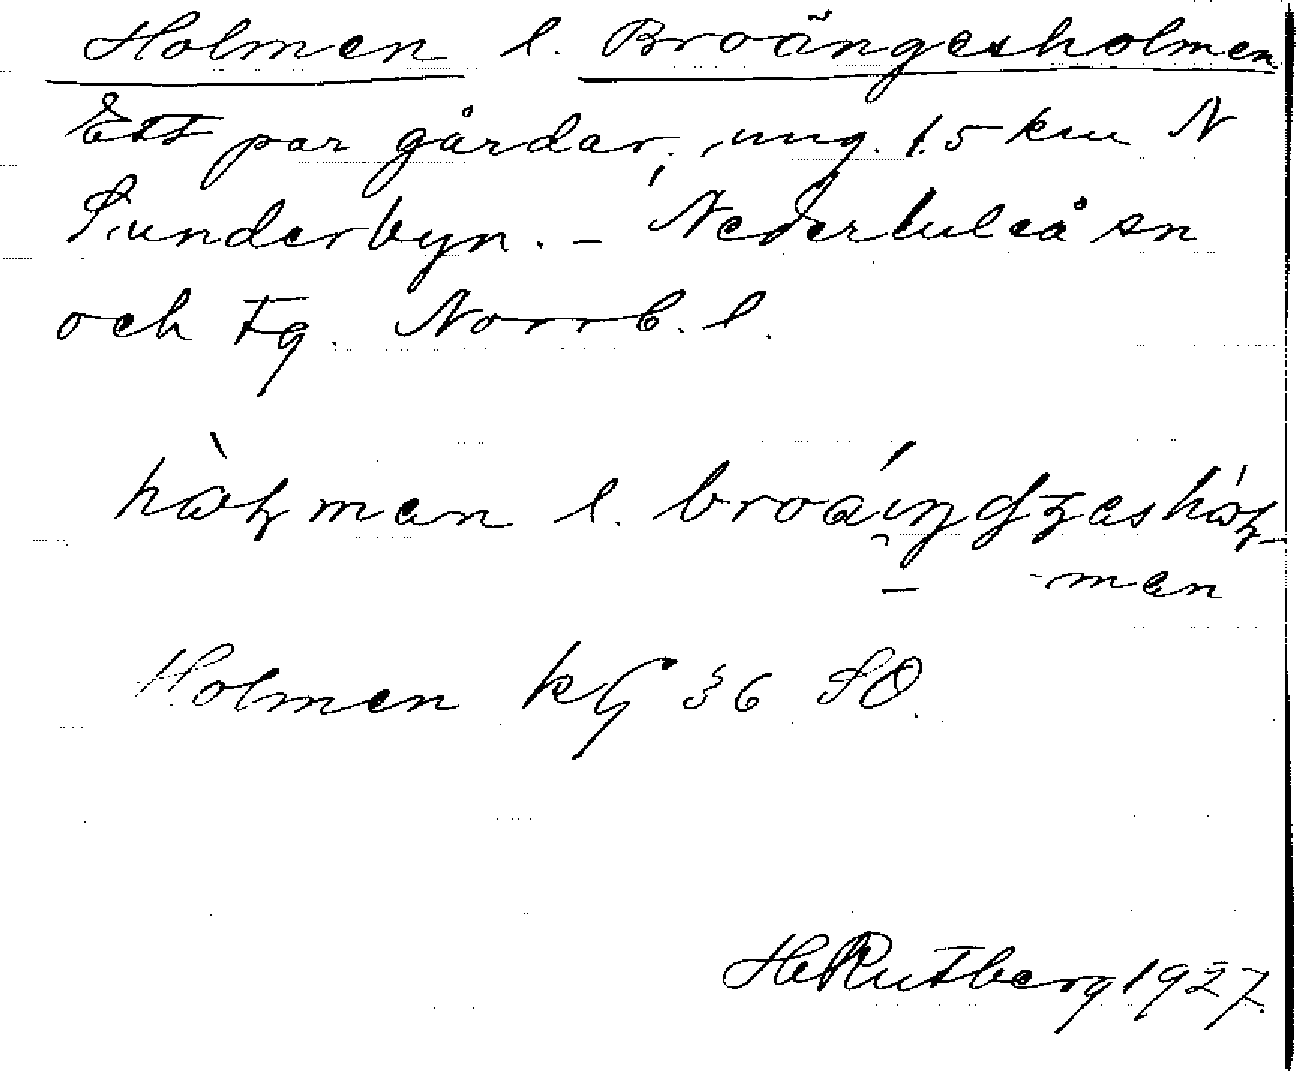 Holmen l. Broängesholmen
Ett par gårdar, ung. 1.5 km N
Sunderbyn. - Nederluleå sn
och Tg. Norrb. l.
man
Holmen kG 36 SO.
H Rutberg 1927.